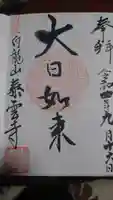 奉拝 令和四年九月十六日
大日如来
白龍山 泰雲寺